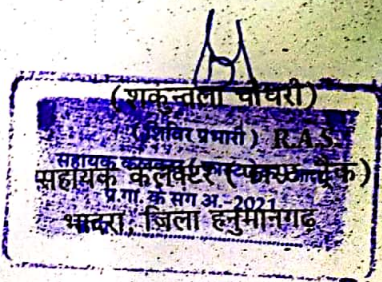 (शकुन्तला चौधरी)
(शिविर प्रभारी) R.A.S.
सहायक कलेक्टर (फास्ट ट्रैक)
प्र.गां. के सग अ. 2021
भादरा, जिला हनुमानगढ़